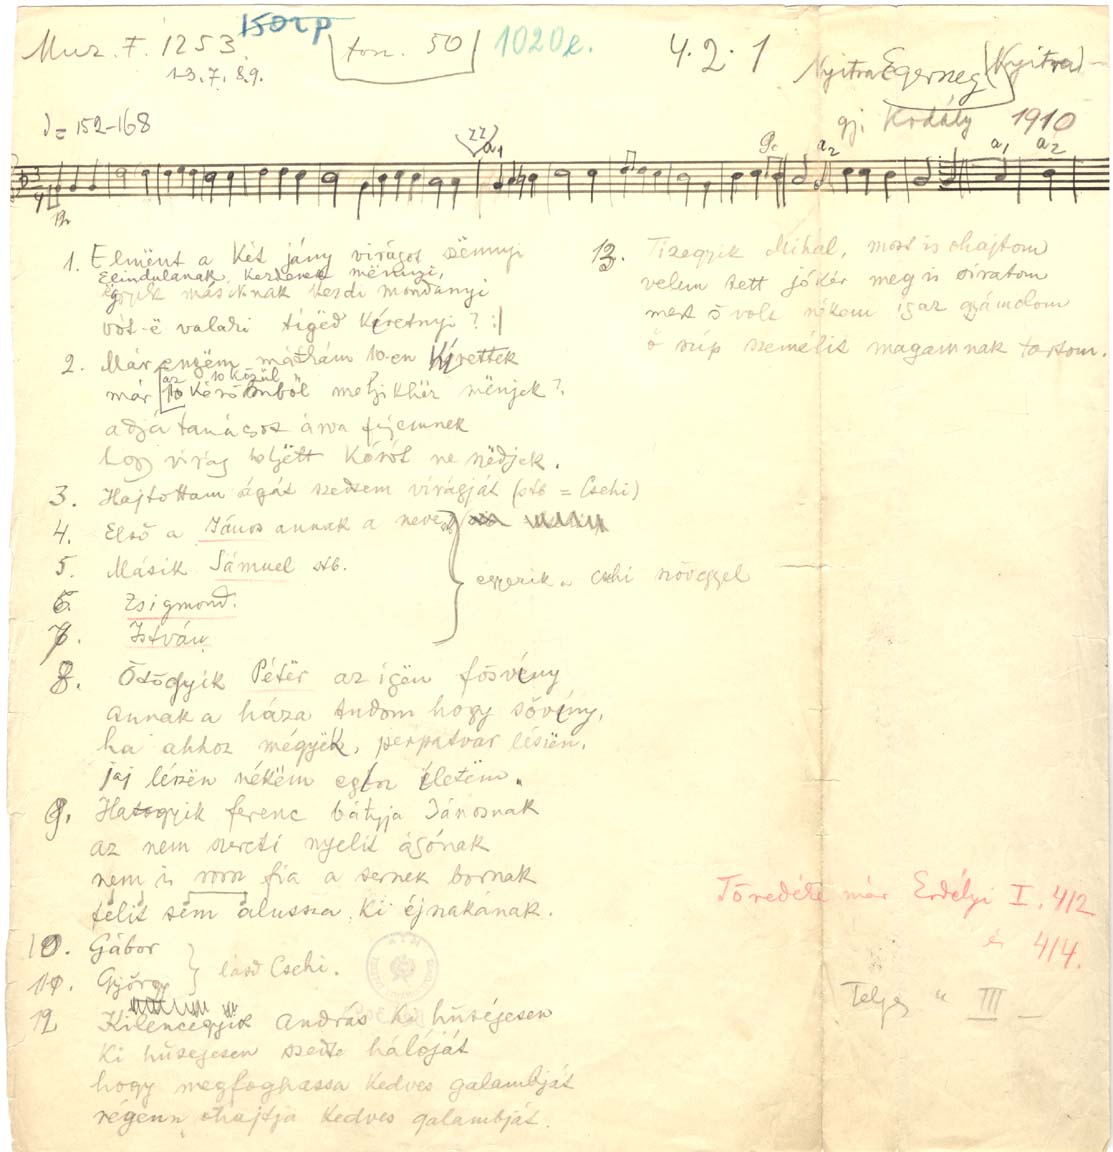 Muz. F. 1253. 1502p ton. 50 1020e. 4.2.1 Nyitra Egerszeg (Nyitra)
1-3.7.8.9.
gj. Kodály 1910
♩= 152-168
a1 a2 a1 a2
1. Elmënt a két jány virágot szënnyi
Elindulanak, kezdenek mënnyi,
ëgyik másiknak kezdi mondanyi
vót-ë valaki tigëd kéretnyi? :|
2. Már engëm mátkám 10-en kérettek
az 10 közül
már 10 kérőimből melyikhëz mënjek?
adjá tanácsot árva fejemnek
hogy virág helyëtt kórót ne szëdjek.
3. Hajtottam ágát szedtem virágját (stb = Csehi)
4. Első a János annak a neve
5. Másik Sámuel stb.
egyezik a csehi szöveggel
6. Zsigmond.
7. István
8. Ötögyik Pétër az igën fösvény
annak a háza tudom hogy sövény,
ha ahhoz mëgyëk, perpatvar lészën,
jaj lészën nékëm ehhöz életëm.
9. Hatogyik ferenc bátyja Jánosnak
az nem szereti nyelit ásónak
nem is rossz fia a sernek bornak
telit sem alussza ki éjnakának.
10. Gábor
lásd Csehi.
11. György
12 Kilencegyik András ki hűségesen
ki hűségesen szedte hálóját
hogy megfoghassa kedves galambját
régenn ohajtja kedves galambját.
13. Tizegyik Mihál, most is ohajtom
velem tett jókér meg is siratom
mert ő volt nékem igaz gyámolom
ő szíp személit magamnak tartom.
Töredéke már Erdélyi I. 4/2
és 4/4.
Teljes " III